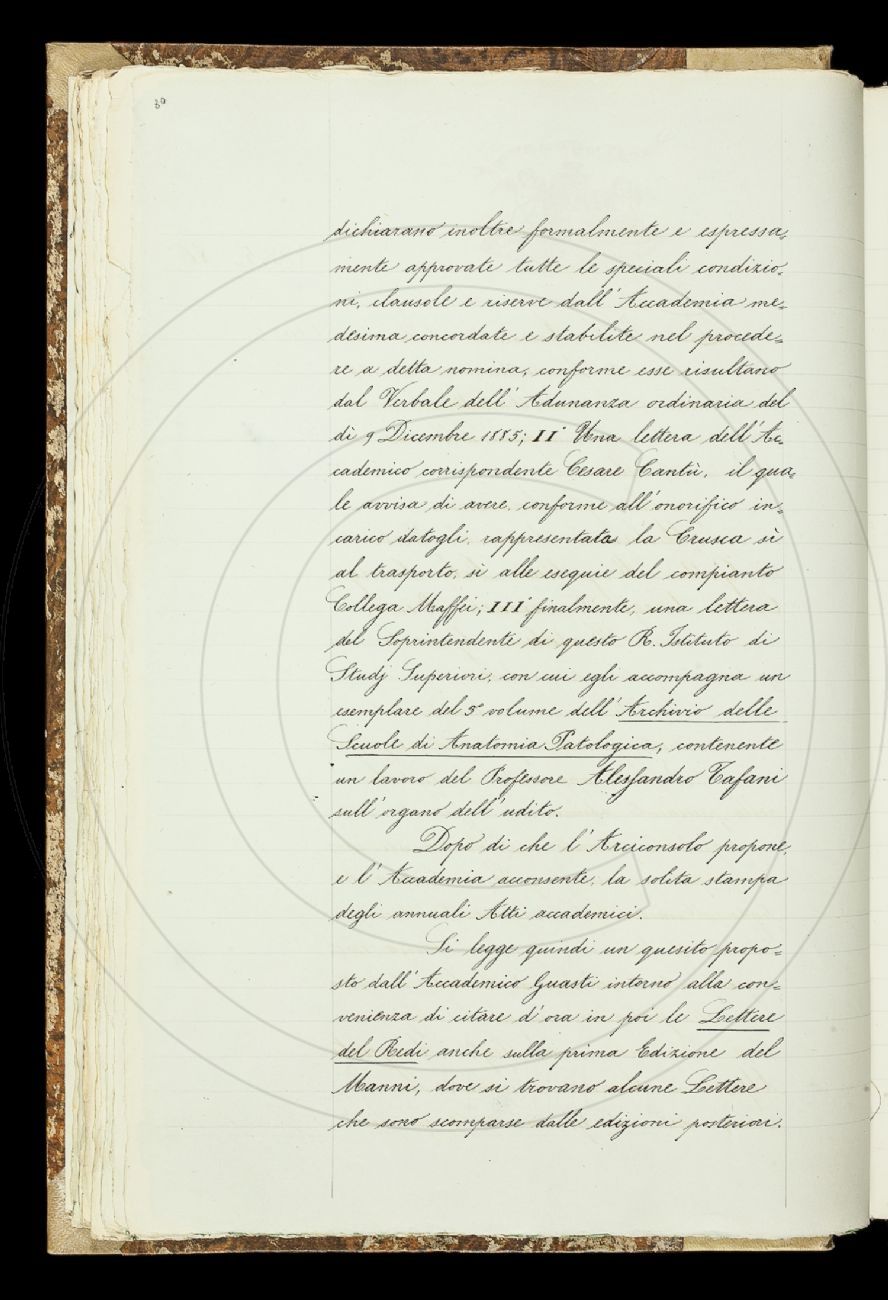 30
dichiarano inoltre formalmente e espressa=
mente approvate tutte le speciali condizio=
ni, clausole e riserve dall'Accademia me=
desima concordate e stabilite nel procede=
re a detta nomina, conforme esse risultano
dal Verbale dell'Adunanza ordinaria del
dì 9 Dicembre 1885; II° Una lettera dell'Ac=
cademico corrispondente Cesare Cantù, il qua=
le avvisa di avere, conforme all'onorifico in=
carico datogli, rappresentata la Crusca sì
al trasporto, sì alle esequie del compianto
Collega Maffei; III° finalmente, una lettera
del Soprintendente di questo R. Istituto di
Studj Superiori, con cui egli accompagna un
esemplare del 5° volume dell'Archivio delle
Scuole di Anatomia Patologica, contenente
un lavoro del Professore Alessandro Tafani
sull'organo dell'udito.
Dopo di che l'Arciconsolo propone,
e l'Accademia acconsente, la solita stampa
degli annuali Atti accademici.
Si legge quindi un quesito propo=
sto dall'Accademico Guasti intorno alla con=
venienza di citare d'ora in poi le Lettere
del Redi anche sulla prima Edizione del
Manni, dove si trovano alcune Lettere
che sono scomparse dalle edizioni posteriori.